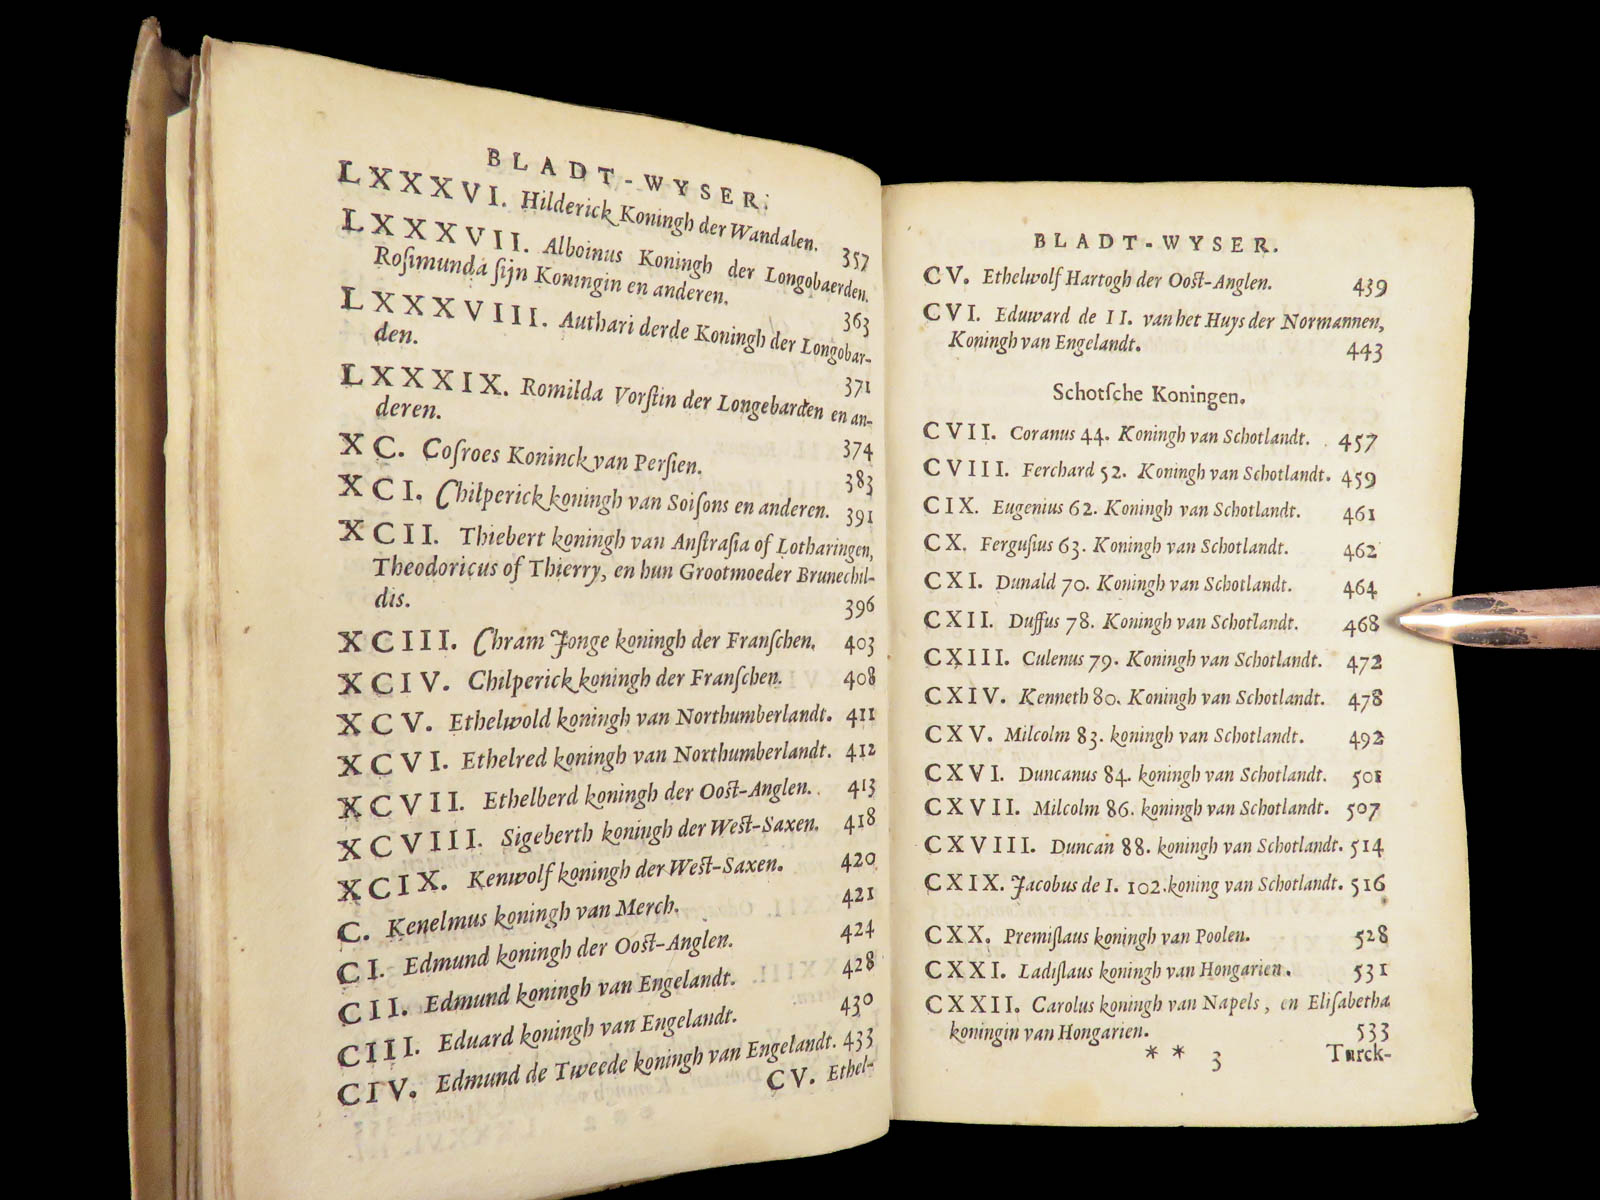 BLADT-WYSER.
LXXXVI. Hilderick Koningh der Wandalen. 357
LXXXVII. Alboinus Koningh der Longobaerden.
Rosimunda ſijn Koningin en anderen. 363
LXXXVIII. Authari derde Koningh der Longobar-
den. 371
LXXXIX. Romilda Vorſtin der Longebarden en an-
deren. 374
XC. Coſroes Koninck van Perſien. 383
XCI. Chilperick koningh van Soiſons en anderen. 391
XCII. Thiebert koningh van Anſtraſia of Lotharingen,
Theodoricus of Thierry, en hun Grootmoeder Brunechil-
dis. 396
XCIII. Chram Jonge koningh der Franſchen. 403
XCIV. Chilperick koningh der Franſchen. 408
XCV. Ethelwold koningh van Northumberlandt. 411
XCVI. Ethelred koningh van Northumberlandt. 412
XCVII. Ethelberd koningh der Ooſt-Anglen. 413
XCVIII. Sigeberth koningh der Weſt-Saxen. 418
XCIX. Kenwolf koningh der Weſt-Saxen. 420
C. Kenelmus koningh van Merch. 421
CI. Edmund koningh der Ooſt-Anglen. 424
CII. Edmund koningh van Engelandt. 428
CIII. Eduard koningh van Engelandt. 430
CIV. Edmund de Tweede koningh van Engelandt. 433
CV. Ethel-
BLADT-WYSER.
CV. Ethelwolf Hartogh der Ooſt-Anglen. 439
CVI. Eduward de II. van het Huys der Normannen,
Koningh van Engelandt. 443
Schotſche Koningen.
CVII. Coranus 44. Koningh van Schotlandt. 457
CVIII. Ferchard 52. Koningh van Schotlandt. 459
CIX. Eugenius 62. Koningh van Schotlandt. 461
CX. Ferguſius 63. Koningh van Schotlandt. 462
CXI. Dunald 70. Koningh van Schotlandt. 464
CXII. Duffus 78. Koningh van Schotlandt. 468
CXIII. Culenus 79. Koningh van Schotlandt. 472
CXIV. Kenneth 80. Koningh van Schotlandt. 478
CXV. Milcolm 83. koningh van Schotlandt. 492
CXVI. Duncanus 84. koningh van Schotlandt. 501
CXVII. Milcolm 86. koningh van Schotlandt. 507
CXVIII. Duncan 88. koningh van Schotlandt. 514
CXIX. Jacobus de I. 102. koning van Schotlandt. 516
CXX. Premiſlaus koningh van Poolen. 528
CXXI. Ladiſlaus koningh van Hongarien. 531
CXXII. Carolus koningh van Napels, en Eliſabetha
koningin van Hongarien. 533
** 3 Turck-